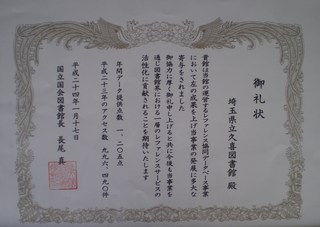 御礼状
埼玉県立久喜図書館 殿
貴館は当館の運営するレファレンス協同データベース事業
において左の成果を上げ当事業の発展に多大な
寄与をされました
御協力に厚く御礼申し上げると共に今後も当事業を
通じ図書館界における一層のレファレンスサービスの
活性化に貢献されることを期待いたします
年間データ提供点数 一、二〇五点
平成二十三年のアクセス数 九九六、四九〇件
平成二十四年一月十七日
国立国会図書館長 長尾 真